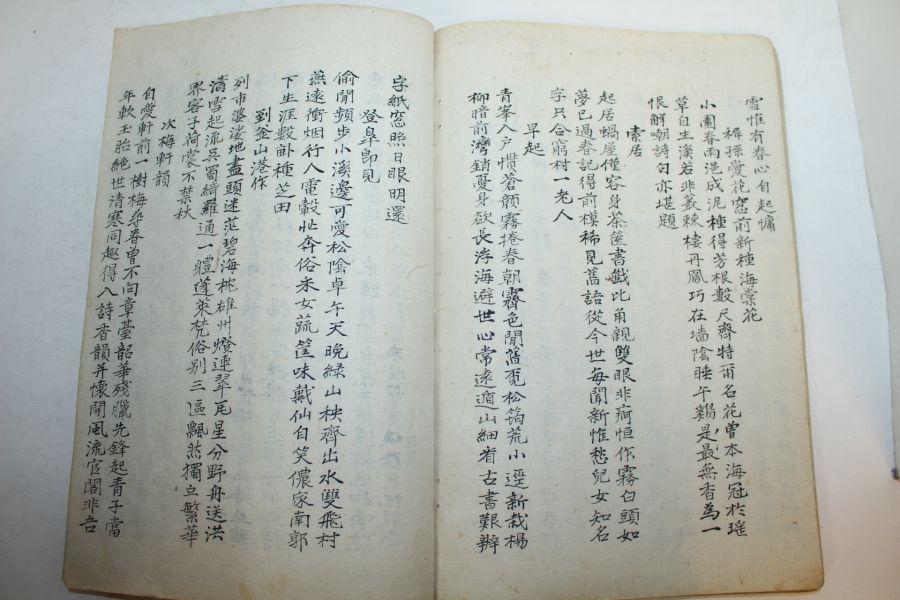 雪惟有春心自起慵
稚孫愛花窓前新種海棠花
小園春雨浥成泥種得芳根數尺齊特甭名花曽本海冠於瑤
草自生溪若非蔌棘棲丹鳳巧在墻陰睡午鷄是最無香為一
恨解嘲詩句亦堪題
索居
起居蝸屋僅容身茶篋書籤比甬親雙眼非痾恒作霧白頭如
夢已過春記得前模稀見舊語從今世每聞新惟愁兒女知名
字只合窮村一老人
早起
青峯入戶慣蒼顔霧捲春朝霽色閒舊菟松筠荒小逕新栽楊
柳暗前灣銷憂身欲長浮海避世心常遠遁山細看古書艱辨
字紙窓照日眼明還
登皐卽見
偷閒頻步小溪邊可愛松陰卓午天晩綠山秧齊出水雙飛村
燕遠衝烟行人電轂忙奔俗釆女蔬筐味戴仙自笑儂家南郭
下生涯數畝種芝田
到釜山港作
列市婆娑地盡頭迷茫碧海枕雄州燈連翠瓦星分野舟送洪
濤雪起流吳蜀綺羅通一軆蓬萊梵俗別三區飄然獨立繁華
界客子荷裳不禁秋
次梅軒韻
自愛軒前一樹梅尋春曽不向章臺韶華殘臘先鋒起青子當
年軟玉胎絶世清寒同趣得入詩香韻幷懷開風流官閣非吾